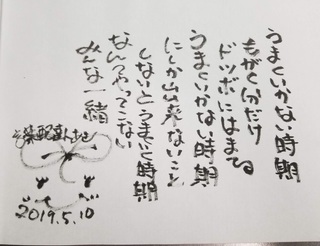 うまくいかない時期
もがく分だけ
ドツボにはまる
うまくいかない時期
にしか出来ないこと
しないとうまくいく時期
なんてやってこない
みんな一緒
2019.5.10